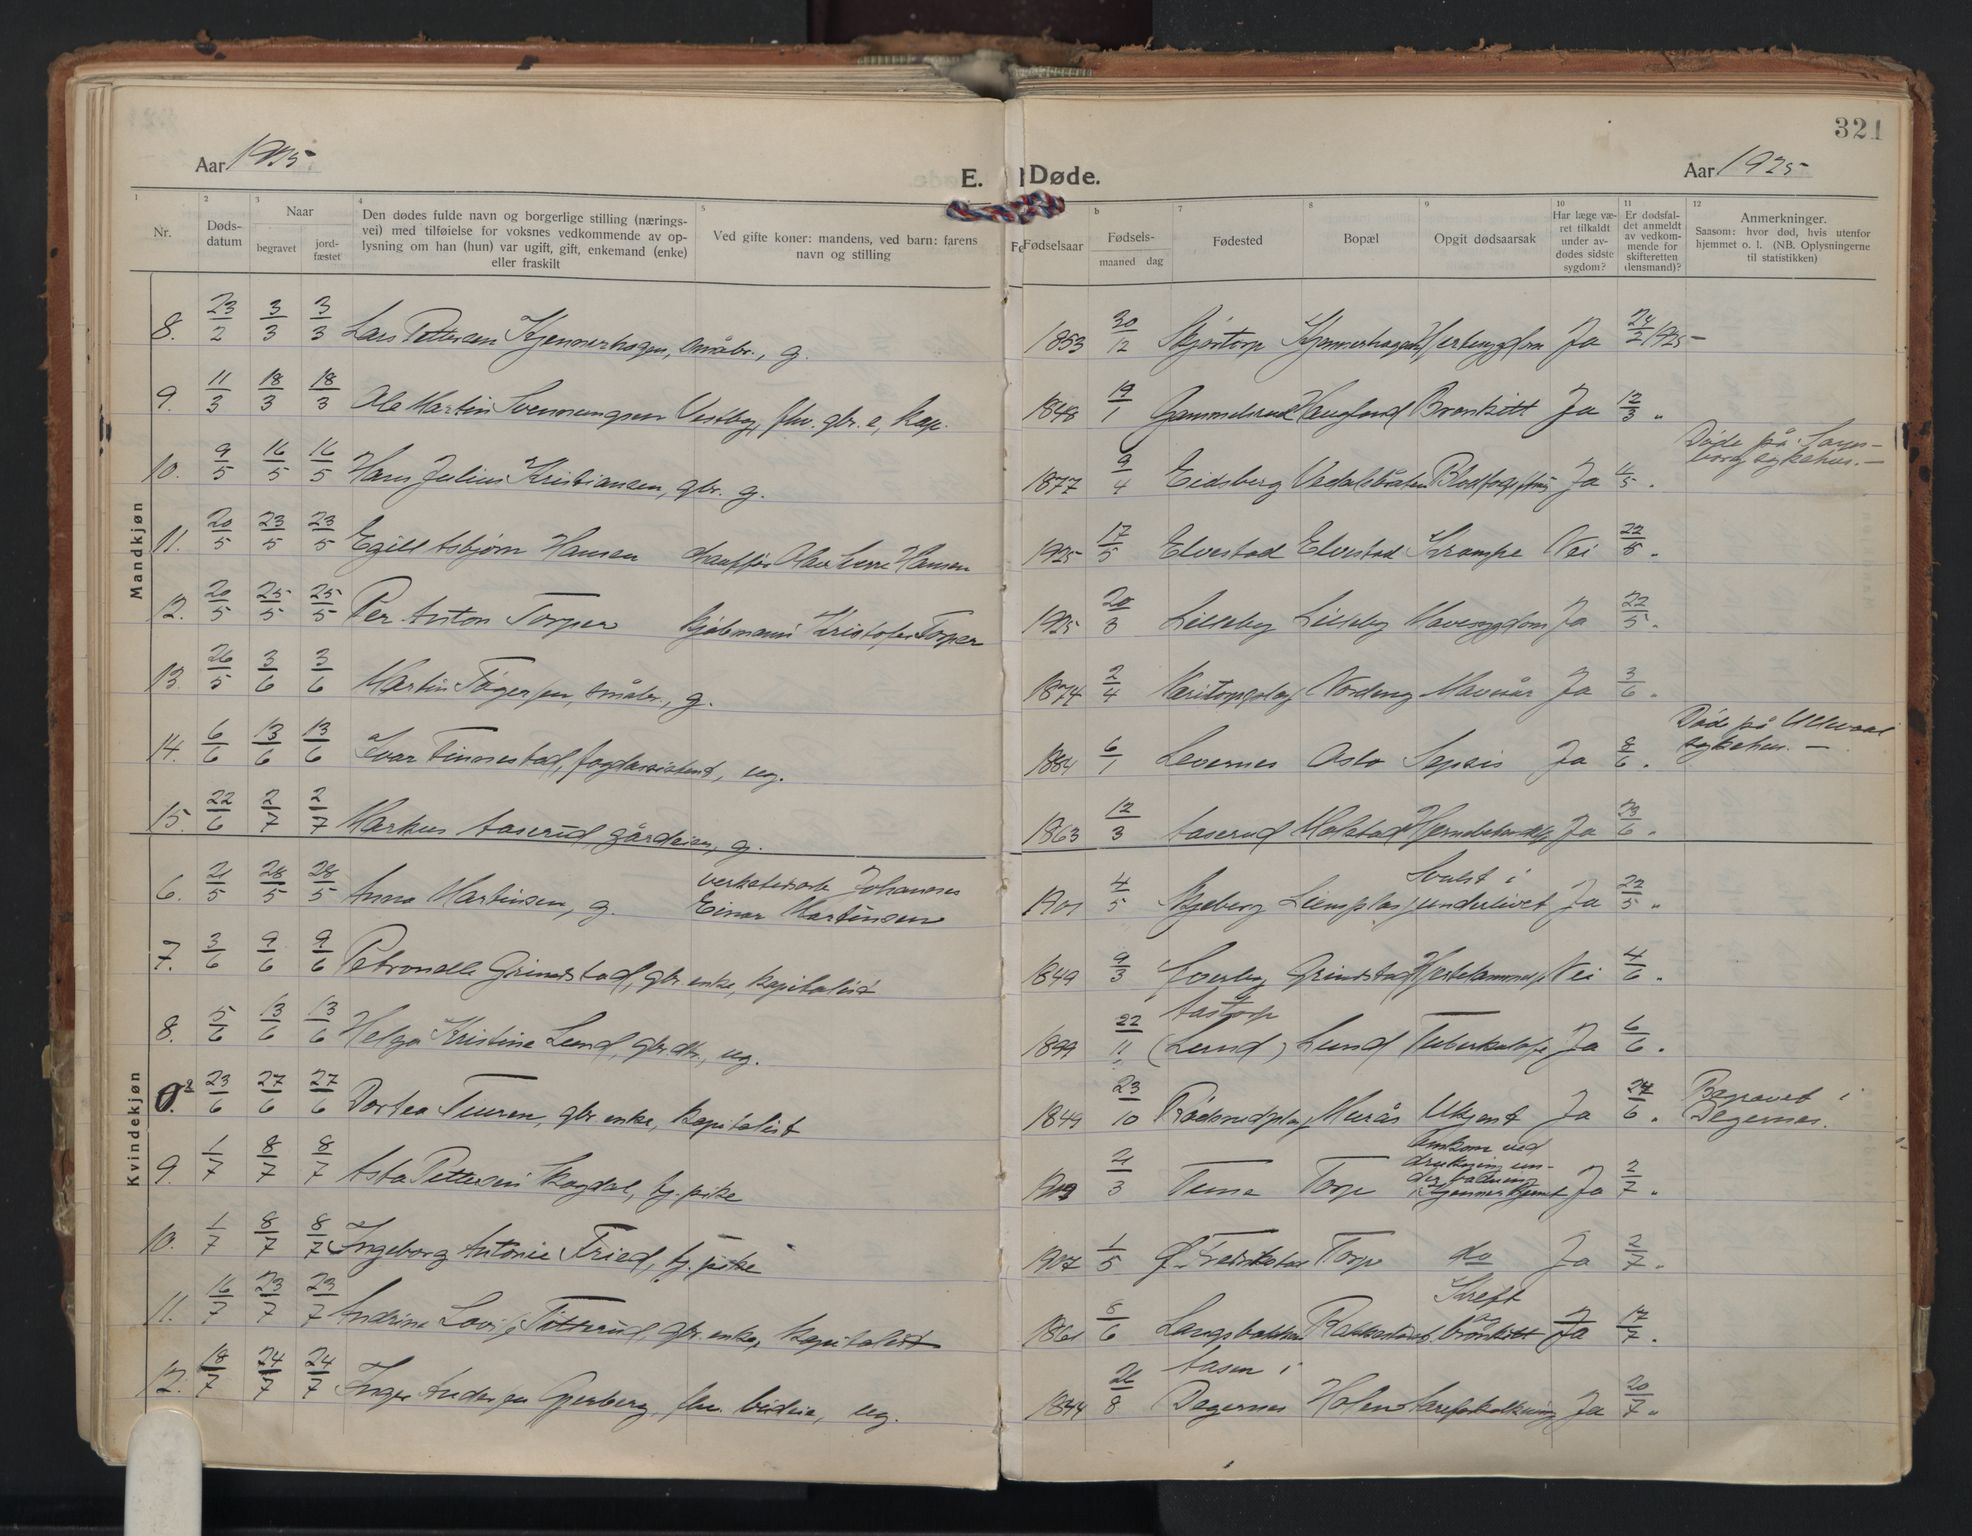 321
Aar 1925
E. Døde.
Aar 1925
1 2 3 4 5 6 7 8 9 10 11 12
Nr. Døds-datum Naar begravet jord-fæstet Den dødes fulde navn og borgerlige stilling (nærings-vei) med tilføielse for voksnes vedkommende av op-lysning om han (hun) var ugift, gift, enkemand (enke) eller fraskilt Ved gifte koner: mandens, ved barn: farens navn og stilling Fødselsaar b Fødsels-maaned dag Fødested Bopæl Opgit dødsaarsak Har læge væ-ret tilkaldt under av-dødes sidste sygdom? Er dødsfal-det anmeldt av vedkom-mende for skifteretten (lensmand)? Anmerkninger. Saasom: hvor død, hvis utenfor hjemmet o. l. (NB. Oplysningerne til statistikken)
Mandkjøn
8. 23/2 3/3 3/3 Lars Pettersen Kjennerhagen, småbr., g. 1853 30/12 Skjørtorp Kjennerhagen Hertesygdom Ja 24/2 1925
9. 11/3 18/3 18/3 Ole Martin Svennungsen Vestby, fhv. gbr. e, kap. 1848 19/1 Gammelsrud Haugland Bronkitt Ja 12/3 "
10. 9/5 16/5 16/5 Hans Julius Kristiansen, gbr. g. 1877 9/4 Eidsberg Ja Døde på Sarps-borg sykehus.
11. 20/5 23/5 23/5 Egill Asbjørn Hansen chauffør Hansen 1925 17/5 Elvestad Elvestad Krampe Nei 22/5 "
12. 20/5 25/5 25/5 Per Anton Torper kjøbmann Kristofer Torper 1925 20/3 Lilleby Lilleby Mavesygdom Ja 22/5 "
13. 26/5 3/6 3/6 Martin småbr., g. 1874 2/4 Nordeng Mavesår Ja 3/6 "
14. 6/6 13/6 13/6 Ivar Finnestad, fogdassistent, ug. 1884 6/1 Levernes Oslo Sepsis Ja 8/6 " Døde på Ullevaal sykehus.
15. 22/6 2/7 2/7 Markus Aaserud, gårdeier, g. 1863 12/3 Aaserud Molstad Ja 23/6 "
Kvindekjøn
6. 21/5 28/5 28/5 Anna Martinsen, g. verkstedsarb Johannes Einar Martinsen 1901 4/5 Skjeberg Liensplass Svulst i underlivet Ja 22/5 "
7. 3/6 9/6 9/6 Petronelle Grimstad, gbr. enke, kapitalist 1849 9/3 Grimstad Nei 4/6 "
8. 5/6 13/6 13/6 Helga Kristine Lund, gbr.dtr., ug. 1899 22/11 Aastorp (Lund) Lund Tuberkulose Ja 6/6 "
23/6 27/6 27/6 Dortea gbr. enke, kapitalist 1849 23/10 Murås Ukjent Ja 24/6 " Begravet i Degernes.
9. 1/7 8/7 8/7 Asta Pettersen Skogdal, tj. pike 21/3 Tune Torp Omkom ved drukning un-der badning i Kjennertjernet Ja 2/7 "
10. 1/7 8/7 8/7 Ingeborg Antonie Fried, tj. pike 1907 1/5 Ø. Fredrikstad Torp do Ja 2/7 "
11. 16/7 23/7 23/7 Andrine Lovise gbr. enke, kapitalist 1861 Kreft og bronkitt Ja 17/7 "
12. 18/7 24/7 24/7 Inger Andersen Gjerberg, fhv. budeie, ug. 1844 26/8 Aasen i Degernes Holen Ja 20/7 "